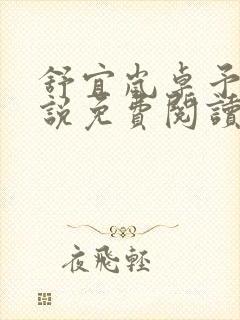 舒宜嵐卓予
說免費閱讀
夜飛輕